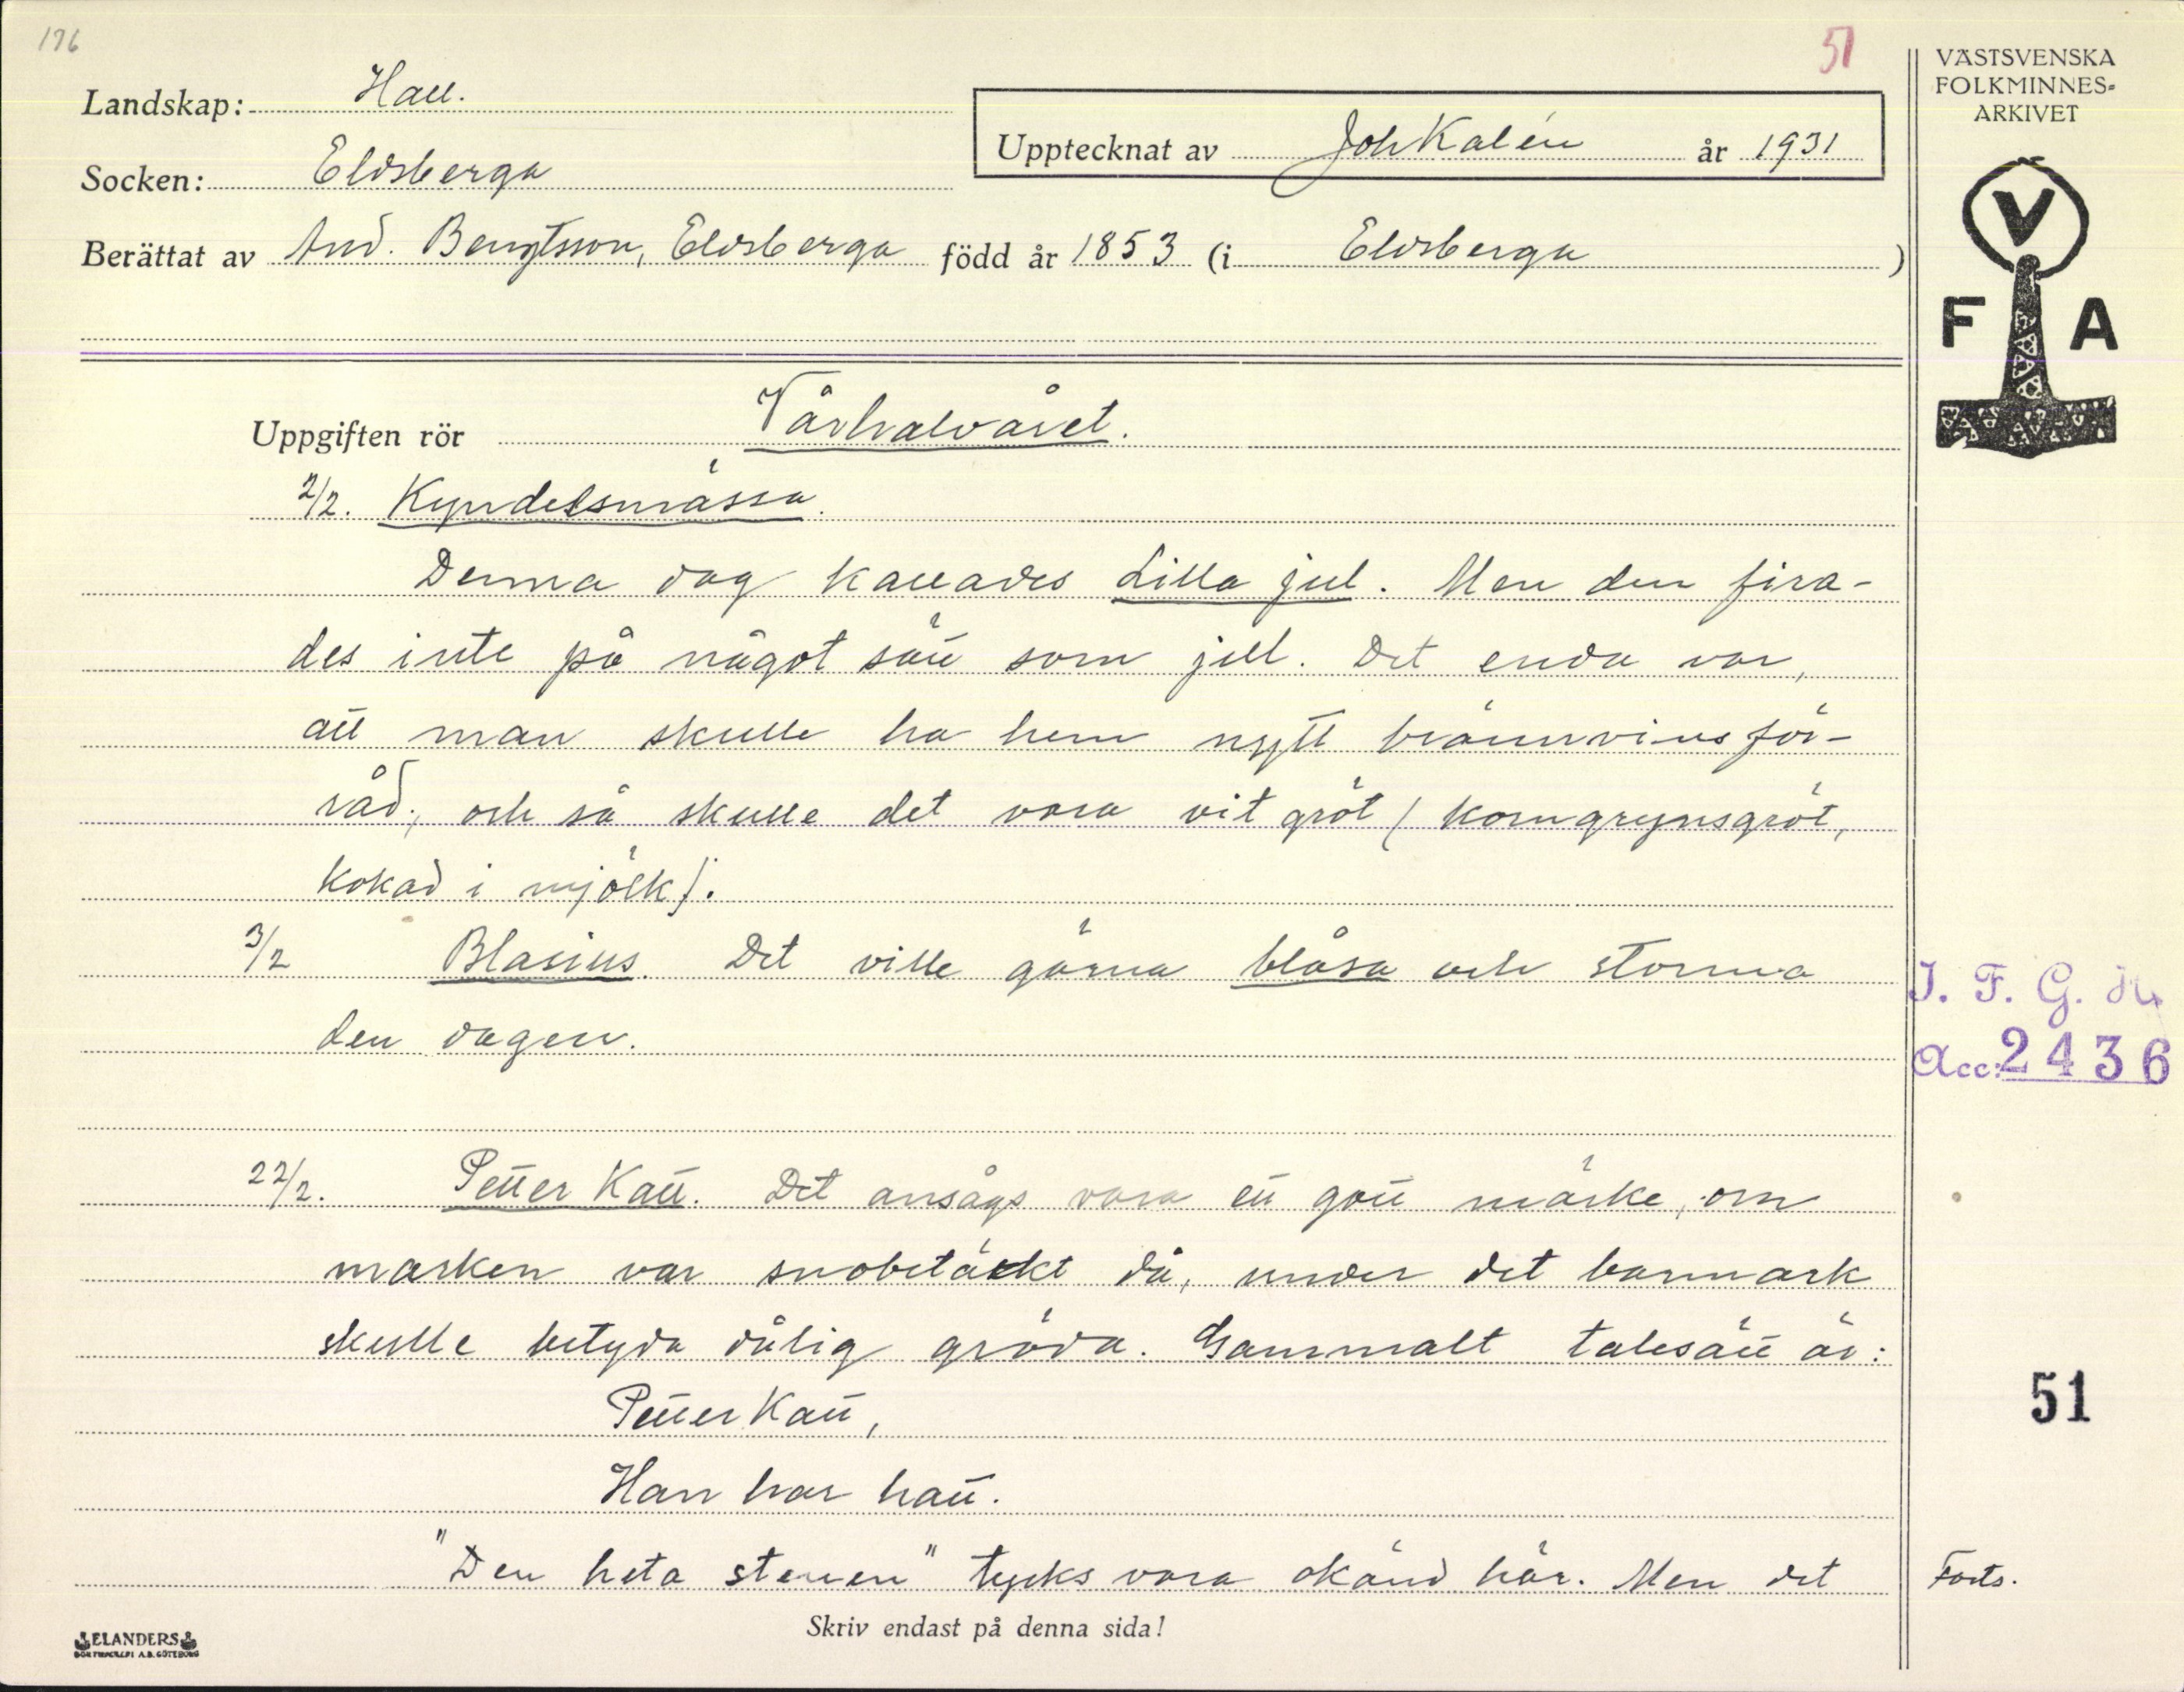 176
51
VÄSTSVENSKA
FOLKMINNES-
ARKIVET
Landskap: Hall.
Upptecknat av Joh Kalén år 1931
Socken: Eldsberga
Berättat av And. Bengtsson, Eldsberga född år 1853 (i Eldsberga)
V
F A
Uppgiften rör Vårhalvåret.
2/2. Kyndelsmässa.
Denna dag kallades Lilla jul. Men den fira-
des inte på något sätt som jul. Det enda var,
att man skulle ha hem nytt brännvinsför-
råd, och så skulle det vara vit gröt (korngrynsgröt,
kokad i mjölk).
3/2 Blasius. Det ville gärna blåsa och storma
den dagen.
I. F. G. Nr
Acc: 2436
22/2. Petter Katt. Det ansågs vara ett gott märke, om
marken var snobetäckt då, under det barmark
skulle betyda dålig gröda. Gammalt talesätt är:
Petter Katt,
51
Han har hatt.
"Den heta stenen" tycks vara okänd här. Men det
Forts.
Skriv endast på denna sida!
ELANDERS
BOKTRYCKERI A.B. GÖTEBORG